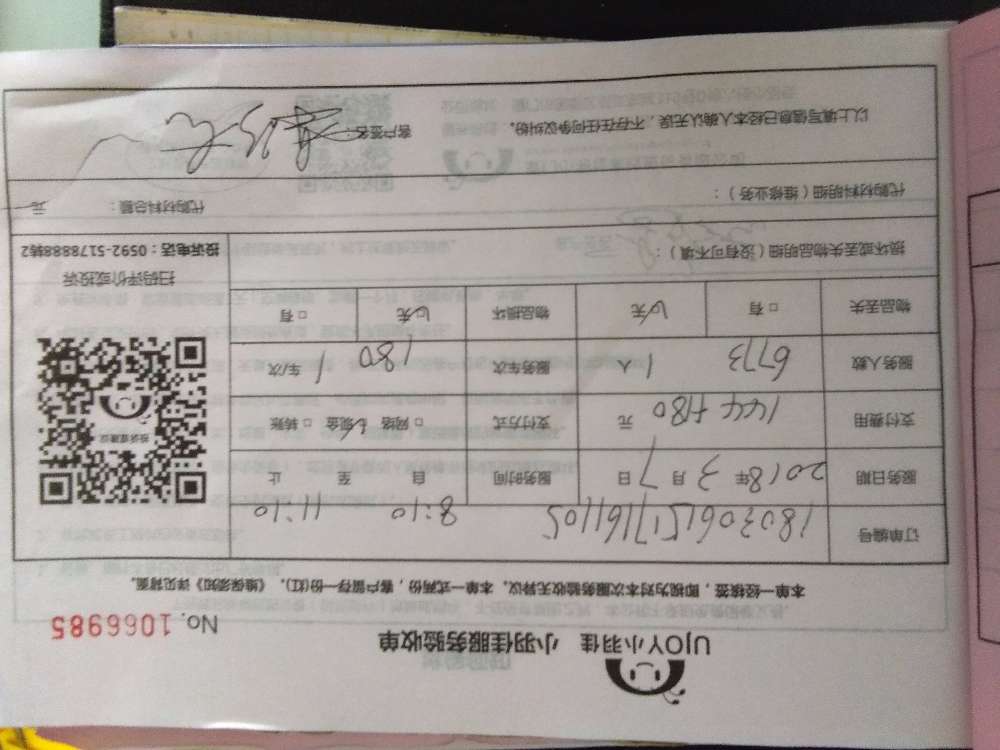 UJOY小羽佳 小羽佳服务验收单
No. 1066985
本单一经核签，即视为对本次服务验收无异议。本单一式两份，客户留存一份(红)。《维保须知》详见背面。
订单编号 1803061517161105
服务日期 2018年 3月 7日 服务时间 自 8:10 至 11:10 止
支付费用 144+180 元 支付方式 □ 网络 ☑ 现金 □ 转账
服务人数 6773 1 人 服务车次 180 1 车/次
物品丢失 □ 有 ☑ 无 物品损坏 ☑ 无 □ 有
扫码评价或投诉
损坏或丢失物品明细（没有可不填）：
投诉电话：0592-5178888转2
代购材料明细（维修业务）：
代购材料总额： 元
以上填写信息已经本人确认无误，不存在任何争议纠纷。 客户签名：